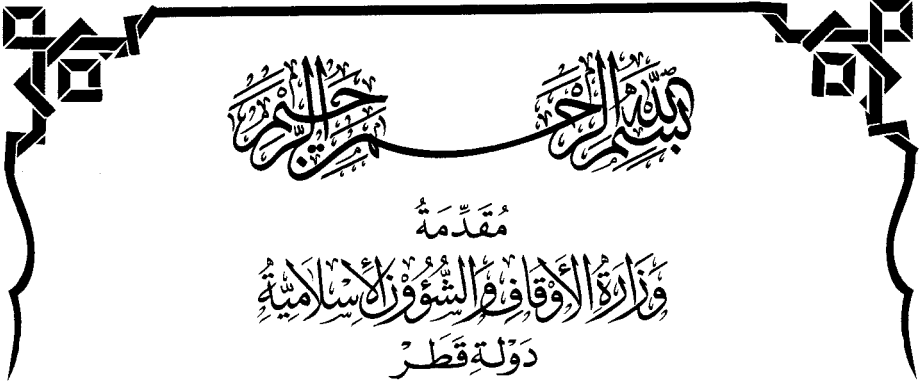 بسم الله الرحمن الرحيم
مُقَدِّمَةُ
وَزَارَةُ الأَوْقَافِ وَالشُّؤُوْنِ الإِسْلَامِيَّةِ
دَوْلَةِ قَطَر